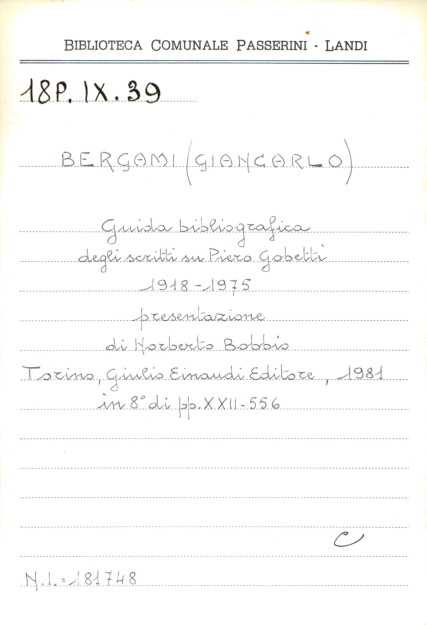 BIBLIOTECA COMUNALE PASSERINI - LANDI
18P. IX. 39
BERGAMI (GIANCARLO)
Guida bibliografica
degli scritti su Piero Gobetti
1918-1975
presentazione
di Norberto Bobbio
Torino, Giulio Einaudi Editore, 1981
in 8° di pp. XXII-556
C
N.I.=181748